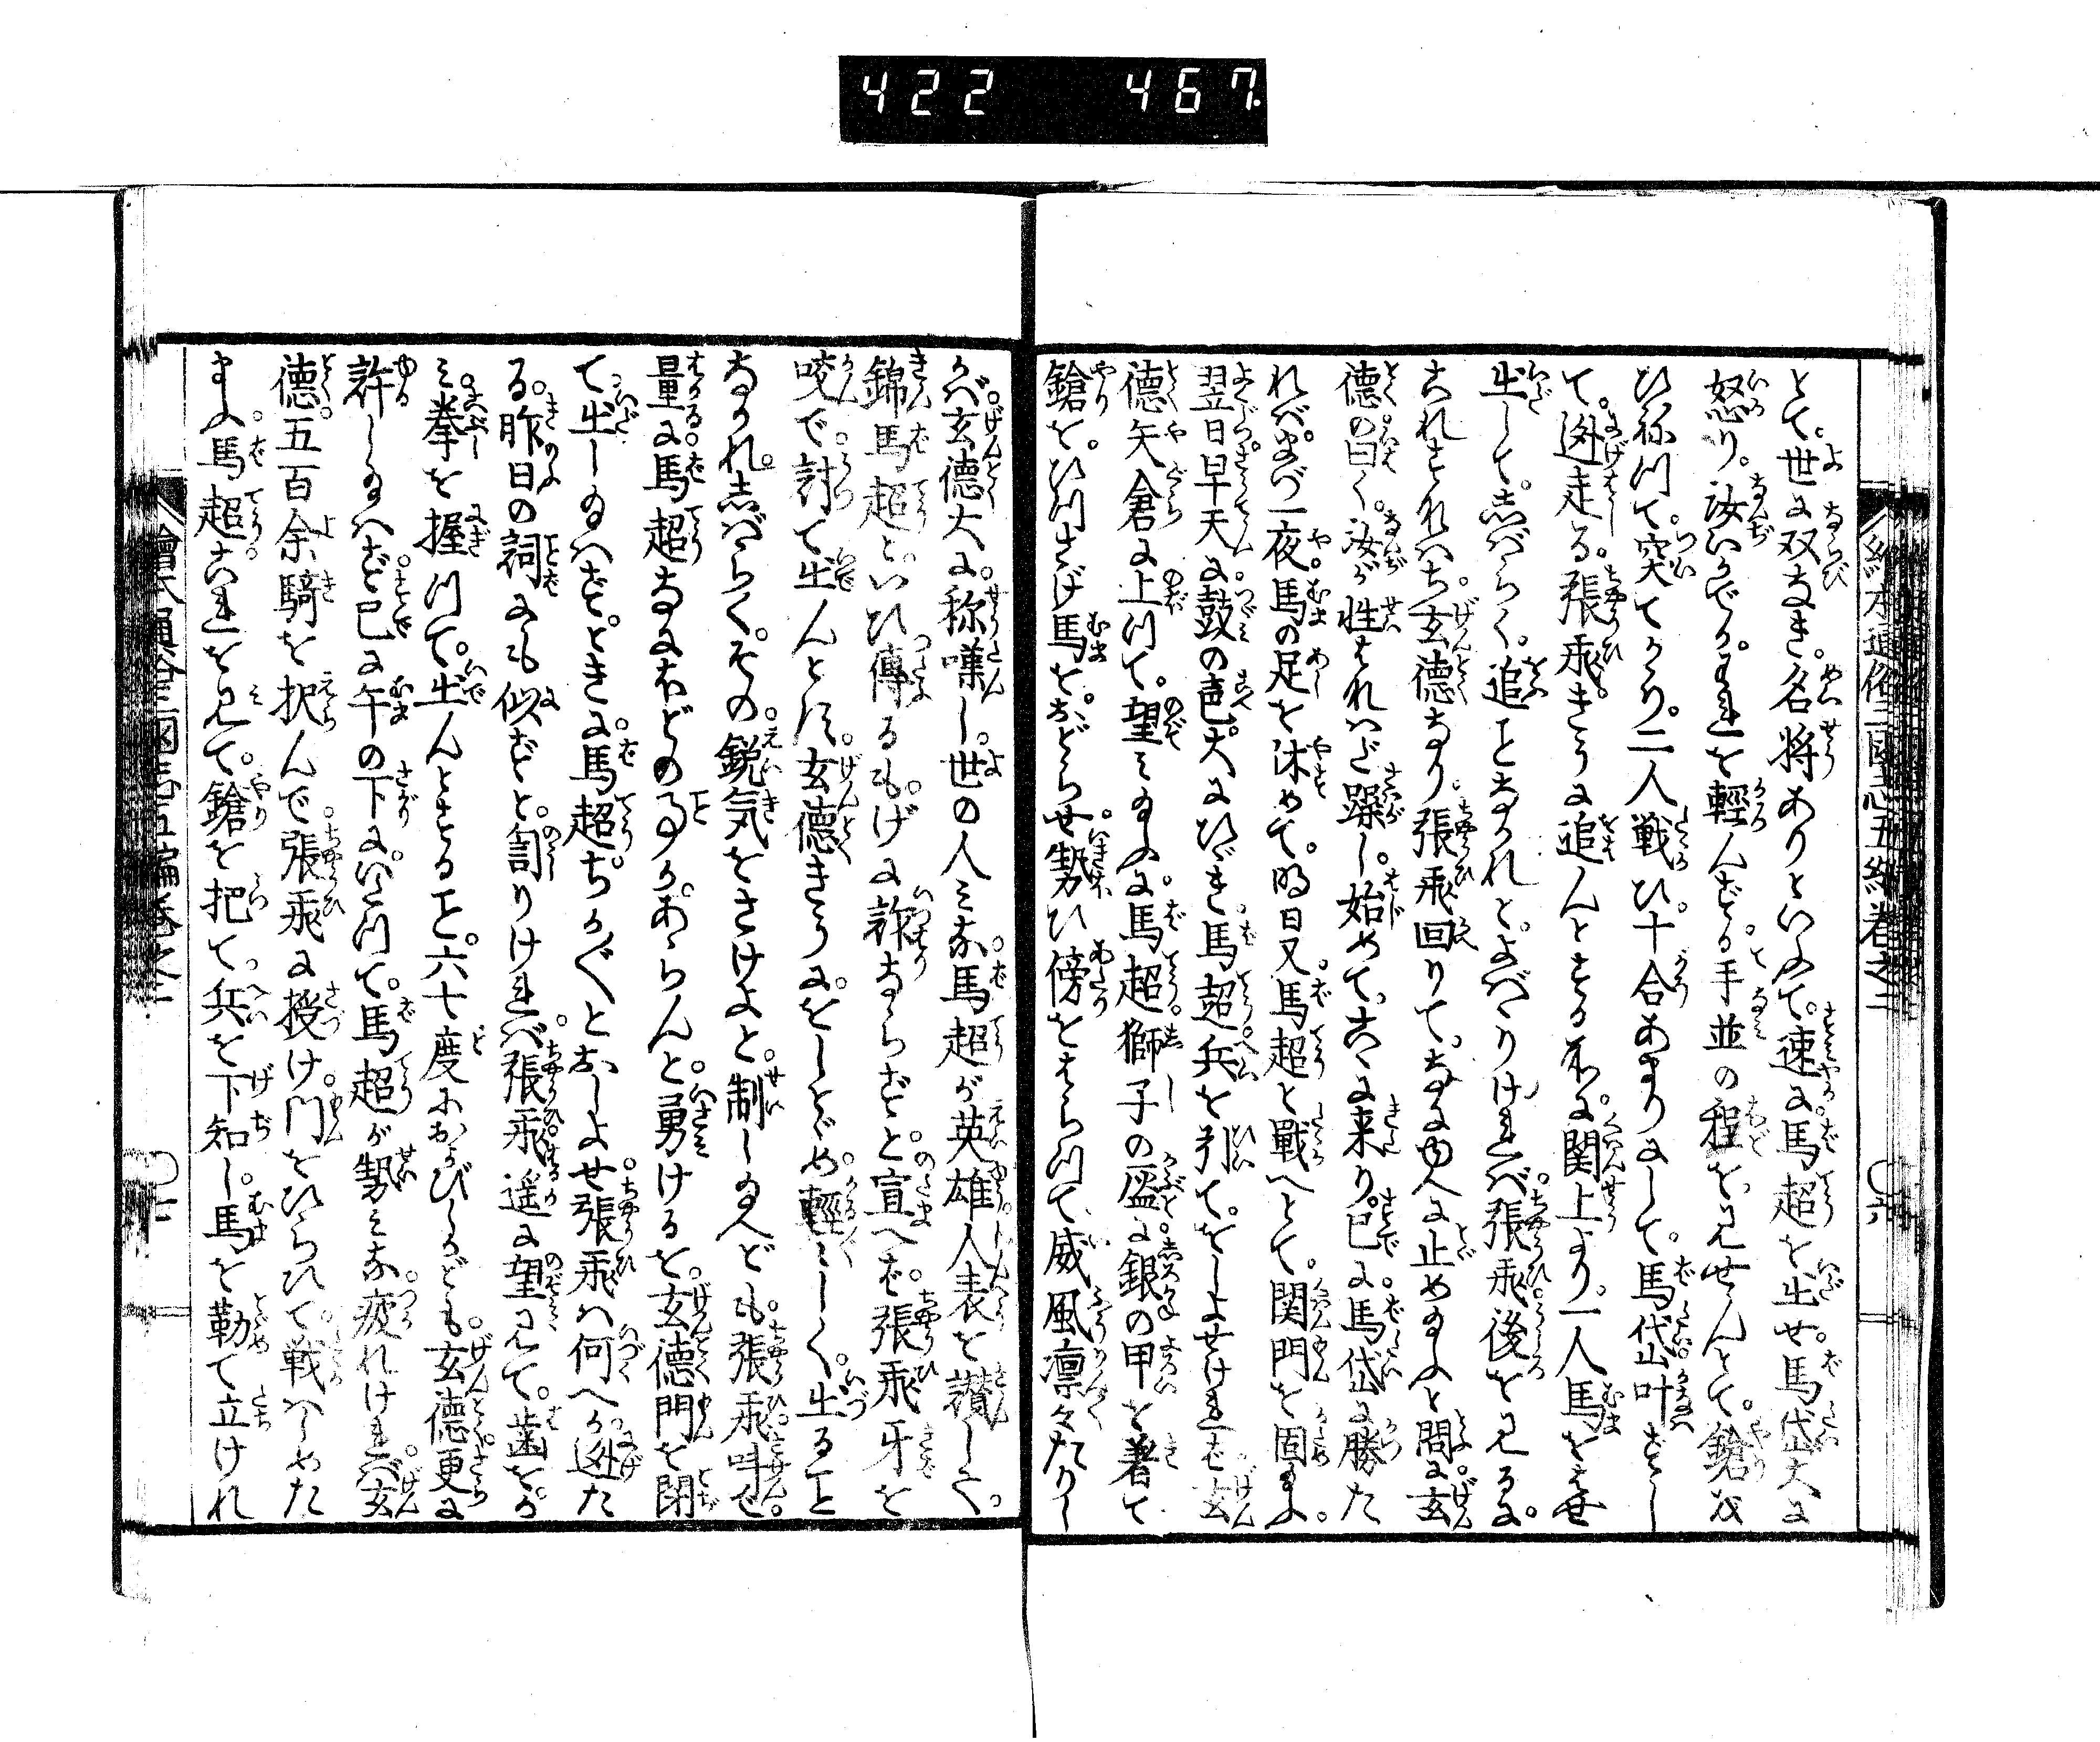 422 467
繪本通俗三國志五編卷之二
とて世に双なき名将ありといふて速に馬超を出せ馬岱大に
怒り汝いかでかわれを輕んずる手並の程を見せんとて鎗を
ひねつて突てかゝり二人戦ひ十合あまりにして馬岱叶ずし
て迯走る張飛きうに追んとする所に関上より一人馬をはせ
出してしばらく追ことなかれとよばゝりければ張飛後を見るに
これすなはち玄徳なり張飛回りてなにゆへに止め玉ふと問に玄
徳の曰く汝が性はなはだ躁し始めてこゝに来り已に馬岱に勝た
ればまづ一夜馬の足を休めて明日又馬超と戰へとて関門を固玉ふ
翌日早天に鼓の声大にひゞき馬超兵を引てをしよせければ玄
徳矢倉に上つて望み玉ふに馬超獅子の盔に銀の甲を著て
鎗をひつさげ馬をおどらせ勢ひ傍をはらつて威風凛々たりし
かば玄徳大に称嘆し世の人みな馬超が英雄人表を讃して
錦馬超といひ傳るもげに詐ならずと宣へば張飛牙を
咬で討て出んとす玄徳きうにをしとゞめ輕々しく出ること
なかれしばらくその鋭気をさけよと制し玉へども張飛叫で
量に馬超なにほどの事かあらんと勇けるを玄徳門を閉
て出し玉はずときに馬超ちかぐとおしよせ張飛は何へか迯た
る昨日の詞にも似ずと詈りければ張飛遥に望見て歯をか
み拳を握つて出んとすること六七度におよびしかども玄徳更に
許し玉はず已に午の下にいたつて馬超が勢みな疲れければ玄
徳五百余騎を択んで張飛に授け門をひらひて戦はしめた
まふ馬超これを見て鎗を把て兵を下知し馬を勒て立けれ